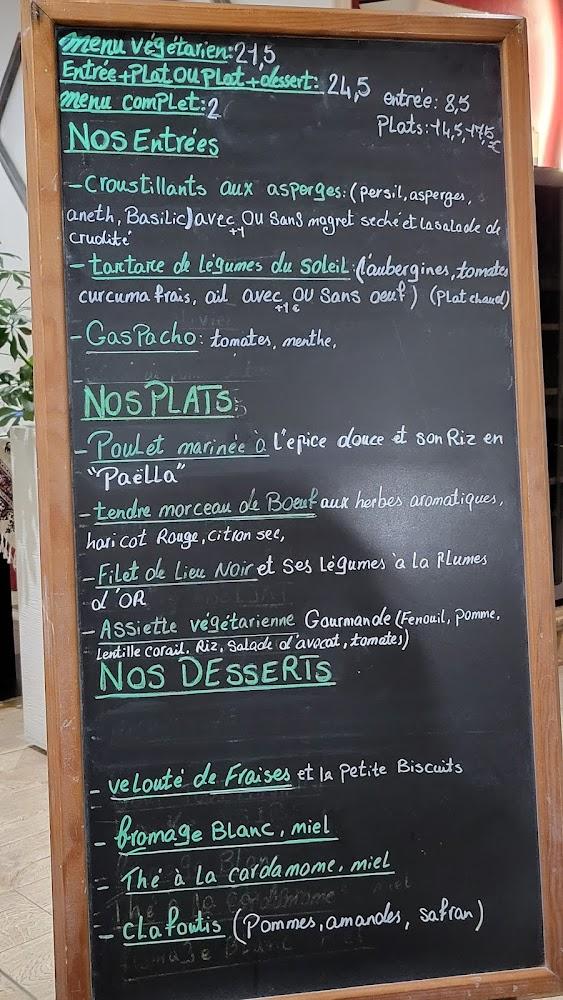 menu végétarien: 21,5
Entrée+Plat OU Plat+dessert: 24,5
menu complet: 2
entrée: 8,5
Plats: 14,5, 17,5€
NOS Entrées
- Croustillants aux asperges: (persil, asperges,
aneth, Basilic) avec OU Sans magret seché et la salade de
+1
crudité
- tartare de légumes du Soleil: (l'aubergines, tomates
curcuma frais, ail avec OU Sans oeuf) (Plat chaud)
+1€
- GasPacho: tomates, menthe,
NOS PLATS:
- Poulet marinée à l'epice douce et son Riz en
"Paëlla"
- tendre morceau de Boeuf aux herbes aromatiques,
haricot Rouge, citron sec,
- Filet de Lieu Noir et Ses Légumes à la Plumes
d'OR
- Assiette végétarienne Gourmande (Fenouil, Pomme,
Lentille corail, Riz, Salade d'avocat, tomates)
NOS DESSERTS
- velouté de Fraises et la Petite Biscuits
- fromage Blanc, miel
- Thé à La cardamome, miel
- clafoutis (Pommes, amandes, safran)